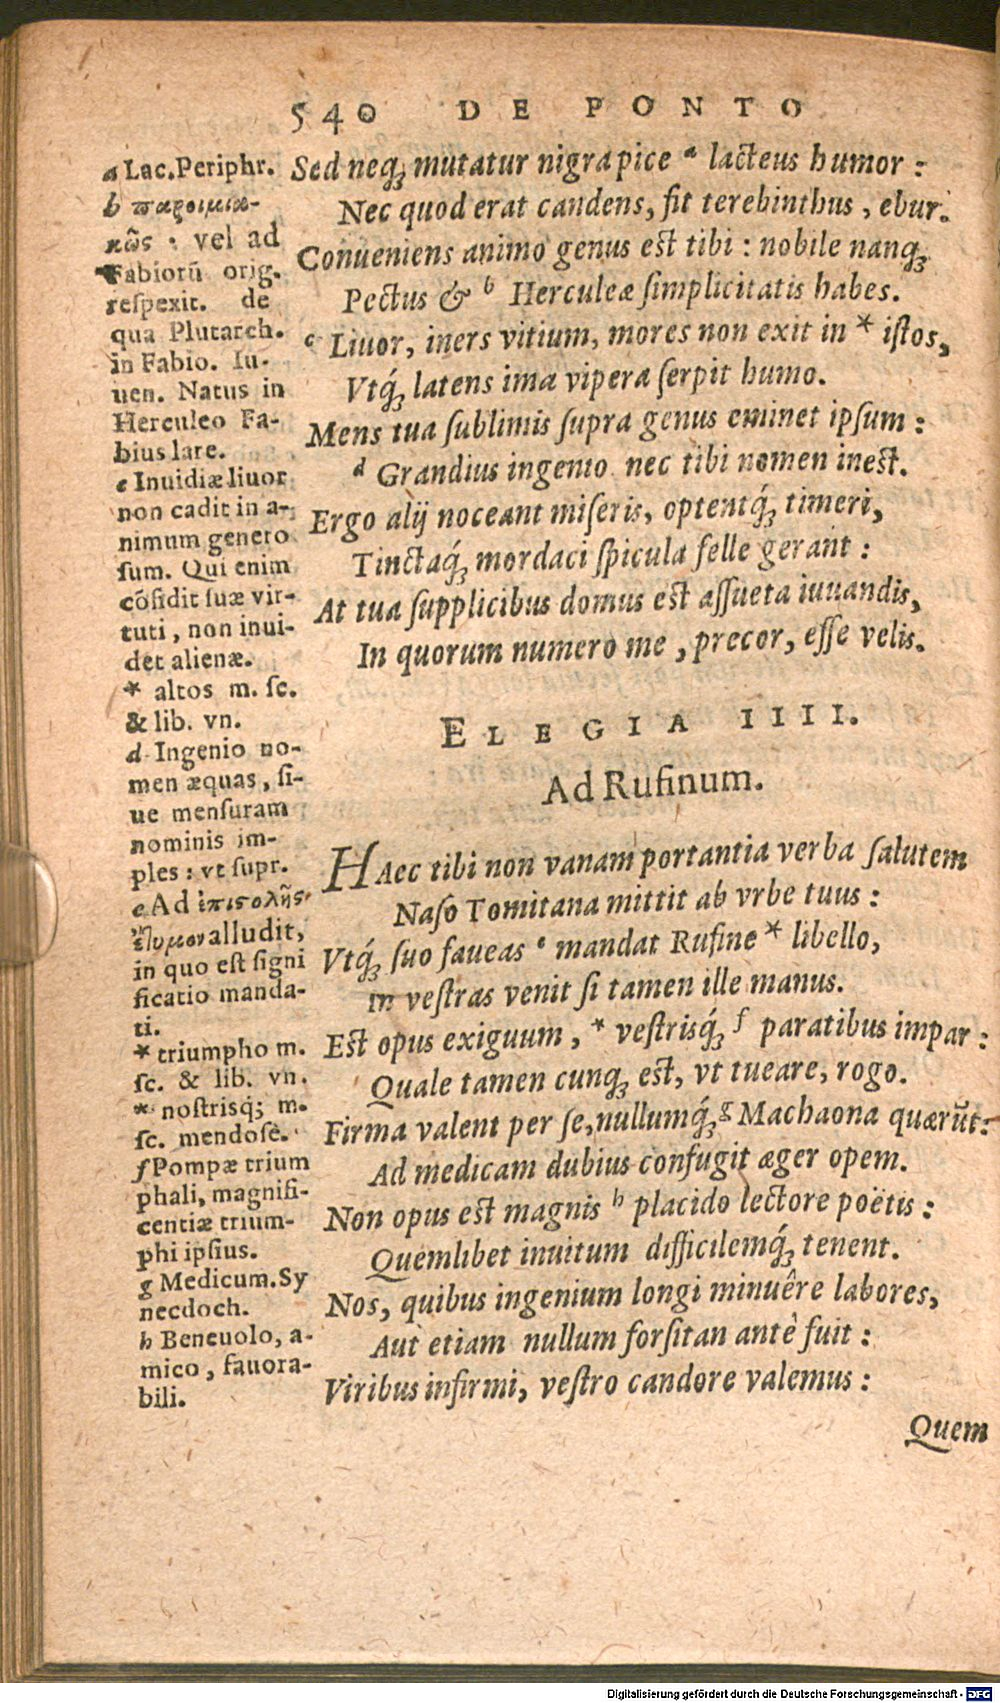 540 DE PONTO
Sed neq; mutatur nigra pice ᵃ lacteus humor :
Nec quod erat candens, fit terebinthus , ebur.
Conueniens animo genus est tibi : nobile nanq;
Pectus & ᵇ Herculeæ ſimplicitatis habes.
ᶜ Liuor, iners vitium, mores non exit in * iſtos,
Vtq́; latens ima vipera ſerpit humo.
Mens tua ſublimis ſupra genus eminet ipſum :
ᵈ Grandius ingenio nec tibi nomen inest.
Ergo alij noceant miſeris, optentq́; timeri,
Tinctaq́; mordaci ſpicula felle gerant :
At tua ſupplicibus domus est aſſueta iuuandis,
In quorum numero me , precor, eſſe velis.
ELEGIA IIII.
Ad Rufinum.
HAec tibi non vanam portantia verba ſalutem
Naſo Tomitana mittit ab vrbe tuus :
Vtq́; ſuo faueas ᵉ mandat Rufine * libello,
In veſtras venit ſi tamen ille manus.
Est opus exiguum , * veſtrisq́; ᶠ paratibus impar :
Quale tamen cunq; est, vt tueare, rogo.
Firma valent per ſe,nullumq́; ᵍ Machaona quærũt:
Ad medicam dubius confugit æger opem.
Non opus est magnis ʰ placido lectore poëtis :
Quemlibet inuitum difficilemq́; tenent.
Nos, quibus ingenium longi minuêre labores,
Aut etiam nullum forſitan antè fuit :
Viribus infirmi, veſtro candore valemus :
Quem
a Lac.Periphr.
b παροιμια-
κῶς · vel ad
Fabiorũ orig.
reſpexit. de
qua Plutarch.
in Fabio. Iu-
uen. Natus in
Herculeo Fa-
bius lare.
c Inuidiæ liuor
non cadit in a-
nimum genero
ſum. Qui enim
cõfidit ſuæ vir-
tuti , non inui-
det alienæ.
* altos m. ſc.
& lib. vn.
d Ingenio no-
men æquas , ſi-
ue menſuram
nominis im-
ples : vt ſupr.
e Ad ἐπιστολῆς
ἔτυμον alludit,
in quo eſt ſigni
ficatio manda-
ti.
* triumpho m.
ſc. & lib. vn.
* nostrisq; m.
ſc. mendoſè.
f Pompæ trium
phali, magnifi-
centiæ trium-
phi ipſius.
g Medicum.Sy
necdoch.
h Beneuolo, a-
mico , fauora-
bili.
Digitalisierung gefördert durch die Deutsche Forschungsgemeinschaft - DFG